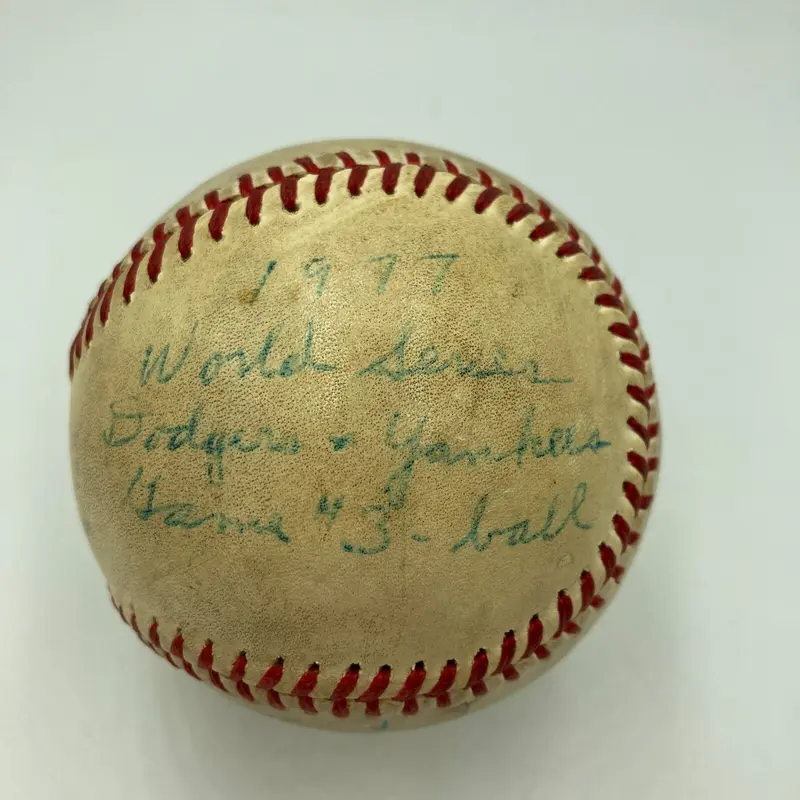 1977
World Series
Dodgers & Yankees
Game "3"- ball